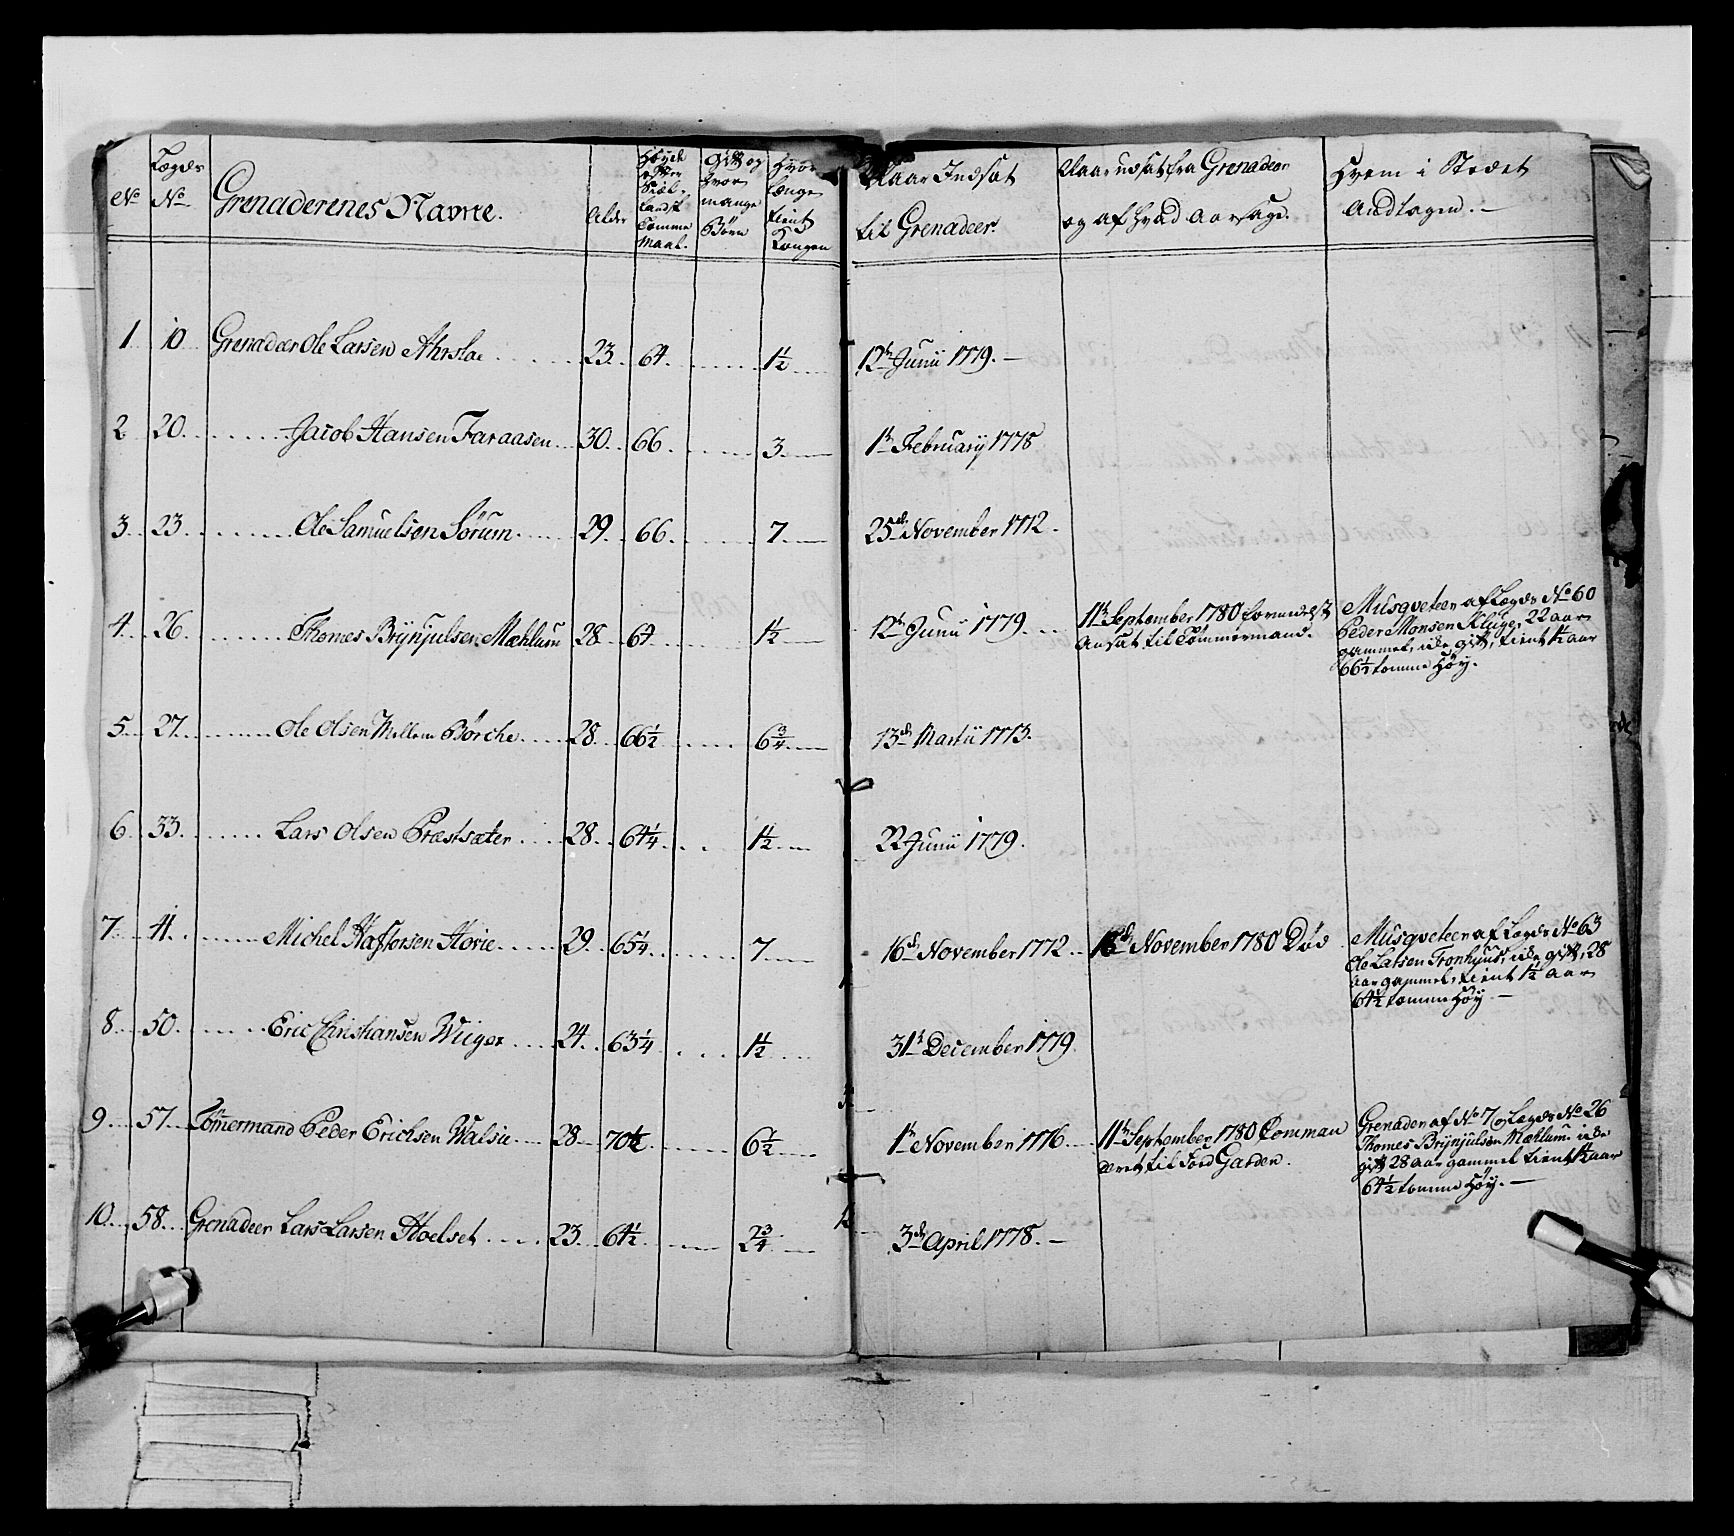 No
Lægds No
Grenaderenes Navne.
Alder
Høyde efter Siel-landsk Tomme Maal.
Gift og hvor mange Børn
Hvor længe tient Kongen
Naar Indsat til Grenadeer.
Naar udsat fra Grenadeer og af hvad aarsage.
Hvem i Stedet Andtagen. —
1 10 Grenadeer Ole Larsen 23 64 1½ 12te Junii 1779. —
2 20 Jacob Hansen Faraasen 30 66 3 1te February 1778
3 23 Ole Samuelsen Sørum 29 66 7 25de November 1772.
4 26 Thomes Brÿnjulsen Mæhlum 28 64 1½ 12te Junii 1779 11te September 1780 formedelst
Ansat til Tømmermand.
Musqveteer af Lægds No 60
Peder Monsen Kluge, 22 aar
gammel, icke gift, tient 1½ aar
66½ tomme Høy.
5 27 Ole Olsen Mellem Børche 28 66½ 6¾ 13de Martii 1773.
6 33 Lars Olsen Præstsæter 28 64¼ 1½ 22 Junii 1779.
7 41 Michel Haftorsen Hovie 29 65¼ 7 16de November 1772 November 1780 Død
Musqveteer af Lægds No 63
Ole Larsen Tronhuus, icke gift, 28
aar gammel, tient 1½ aar
64½ tomme Høy —
8 50 Eric Christiansen Wiiger 24 63¼ 1½ 31te December 1779.
9 57 Tømermand Peder Erichsen Walsie 28 70½ 6½ 1te November 1776 11te September 1780 Comman
deret til Ford Garden.
Grenader af No 7 Lægds No 26
Thomes Brÿnjulsen Mæhlum icke
gift 28 aar gammel tient 1½ aar
64½ tomme Høy. —
10 58 Grenadeer Lars Larsen Hoelset 23 64½ 2¾ 3de April 1778. —